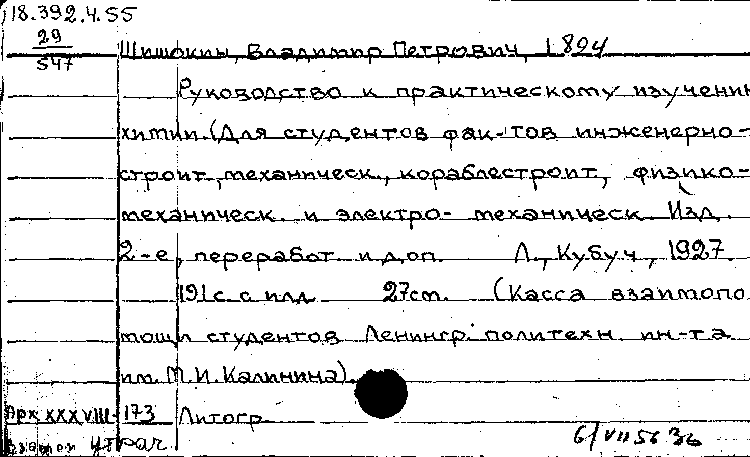 18.392.4.55
29
547
Шишокин, Владимир Петрович, 1894
Руководство к практическому изучени
химии. (Для студентов фак-тов инженерно-
строит., механическ., кораблестроит., физико-
механическ. и электро- механическ. Изд.
2-е, переработ. и доп. Л., Кубуч, 1927.
191 с. с илл. 27 см. (Касса взаимопо
мощи студентов Ленингр. политехн. ин-та
им. М.И. Калинина).
Арх XXXVIII-173 Литогр.
утрач.